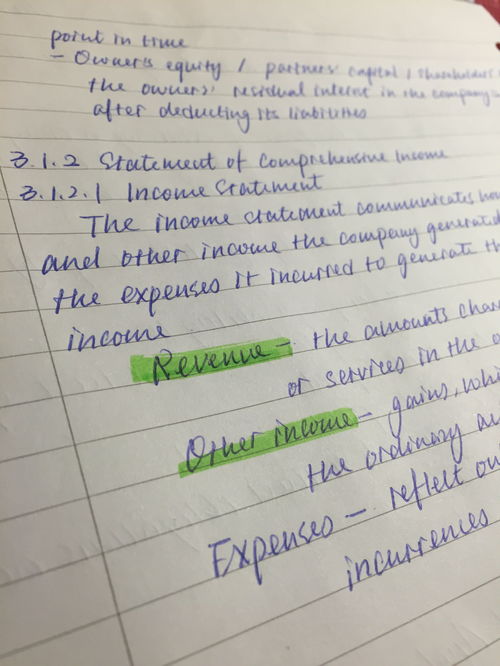 point in time
- Owner's equity / partners' capital / shareholders'
the owners' residual interest in the company
after deducting its liabilities
3.1.2 Statement of Comprehensive Income
3.1.2.1 Income Statement
The income statement communicates how
and other income the company generated
the expenses it incurred to generate
income
Revenue - the amounts
or services in the
Other income - gains,
the ordinary
Expenses - reflect
incurrences